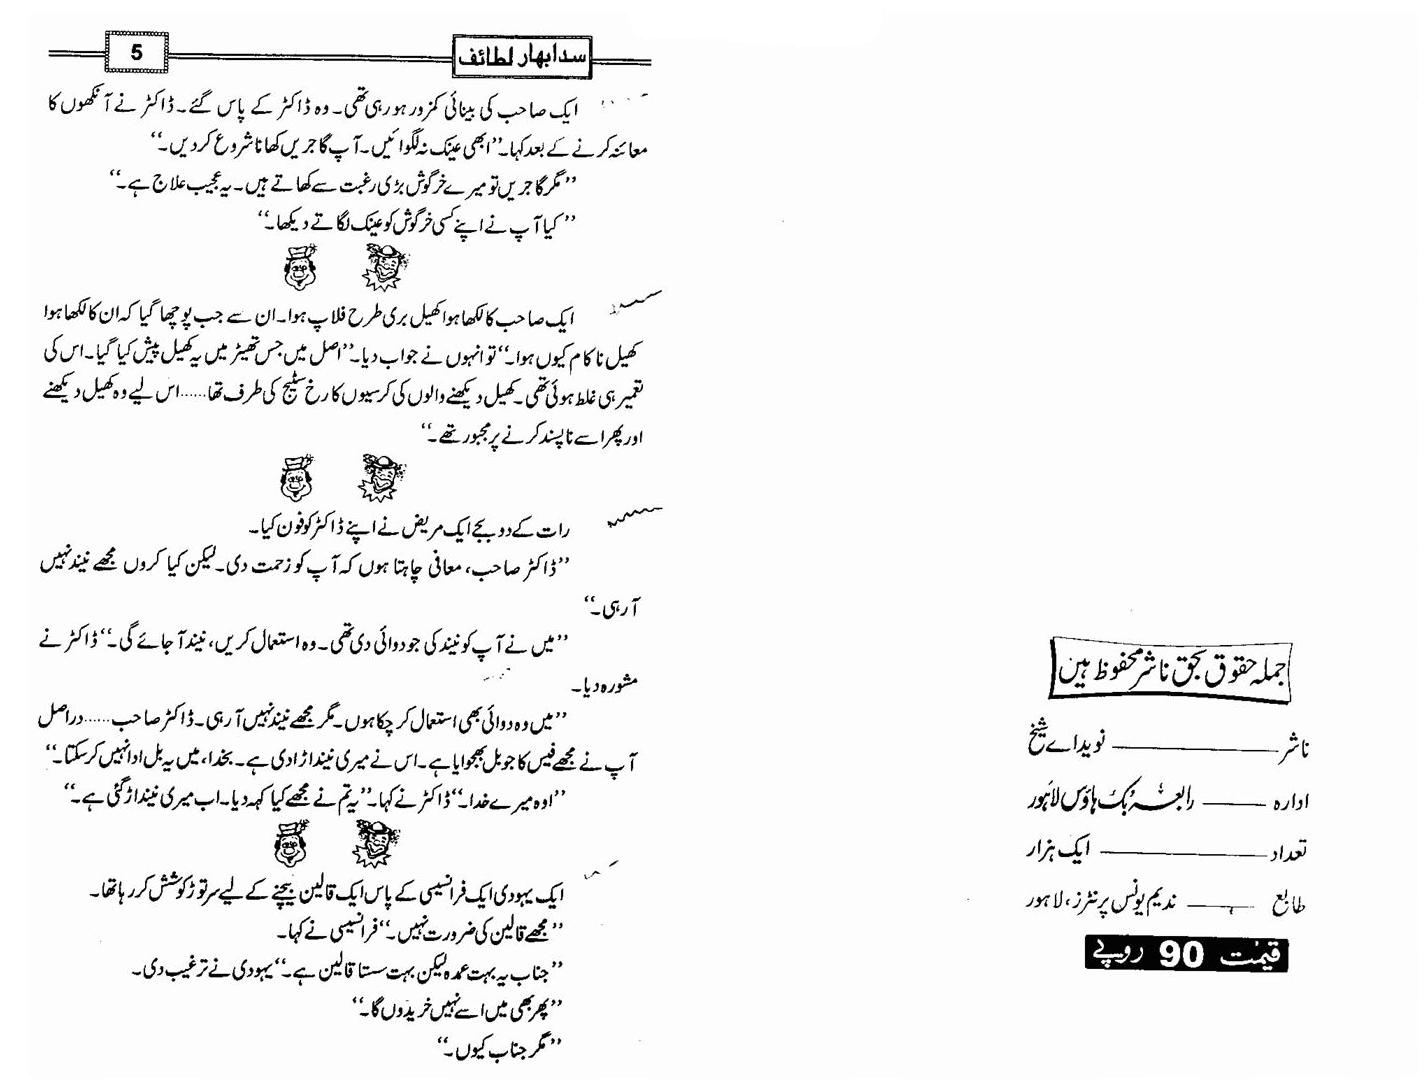 جملہ حقوق بحق ناشر محفوظ ہیں
ناشر ـــــــــــــ نوید اے شیخ
ادارہ ـــــــــــــ رابعہ بک ہاؤس لاہور
تعداد ـــــــــــــ ایک ہزار
طابع ـــــــــــــ ندیم یونس پرنٹرز، لاہور
قیمت 90 روپے
سدا بہار لطائف 5
ایک صاحب کی بینائی کمزور ہو رہی تھی۔ وہ ڈاکٹر کے پاس گئے۔ ڈاکٹر نے آنکھوں کا
معائنہ کرنے کے بعد کہا۔ ’’ابھی عینک نہ لگوائیں۔ آپ گاجریں کھانا شروع کر دیں۔‘‘
’’مگر گاجریں تو میرے خرگوش بڑی رغبت سے کھاتے ہیں۔ یہ عجیب علاج ہے۔‘‘
’’کیا آپ نے اپنے کسی خرگوش کو عینک لگاتے دیکھا۔‘‘
ایک صاحب کا لکھا ہوا کھیل بری طرح فلاپ ہوا۔ ان سے جب پوچھا گیا کہ ان کا لکھا ہوا
کھیل ناکام کیوں ہوا۔‘‘ تو انہوں نے جواب دیا۔ ’’اصل میں جس تھیٹر میں یہ کھیل پیش کیا گیا۔ اس کی
تعمیر ہی غلط ہوئی تھی۔ کھیل دیکھنے والوں کی کرسیوں کا رخ سٹیج کی طرف تھا...... اس لیے وہ کھیل دیکھنے
اور پھر اسے ناپسند کرنے پر مجبور تھے۔‘‘
رات کے دو بجے ایک مریض نے اپنے ڈاکٹر کو فون کیا۔
’’ڈاکٹر صاحب، معافی چاہتا ہوں کہ آپ کو زحمت دی۔ لیکن کیا کروں مجھے نیند نہیں
آ رہی۔‘‘
’’میں نے آپ کو نیند کی جو دوائی دی تھی۔ وہ استعمال کریں، نیند آ جائے گی۔‘‘ ڈاکٹر نے
مشورہ دیا۔
’’میں وہ دوائی بھی استعمال کر چکا ہوں۔ مگر مجھے نیند نہیں آ رہی۔ ڈاکٹر صاحب...... دراصل
آپ نے مجھے فیس کا جو بل بھجوایا ہے۔ اس نے میری نیند اڑا دی ہے۔ بخدا، میں یہ بل ادا نہیں کر سکتا۔‘‘
’’اوہ میرے خدا۔‘‘ ڈاکٹر نے کہا۔ ’’یہ تم نے مجھے کیا کہہ دیا۔ اب میری نیند اڑ گئی ہے۔‘‘
ایک یہودی ایک فرانسیسی کے پاس ایک قالین بیچنے کے لیے سر توڑ کوشش کر رہا تھا۔
’’مجھے قالین کی ضرورت نہیں۔‘‘ فرانسیسی نے کہا۔
’’جناب یہ بہت عمدہ لیکن بہت سستا قالین ہے۔‘‘ یہودی نے ترغیب دی۔
’’پھر بھی میں اسے نہیں خریدوں گا۔‘‘
’’مگر جناب کیوں۔‘‘